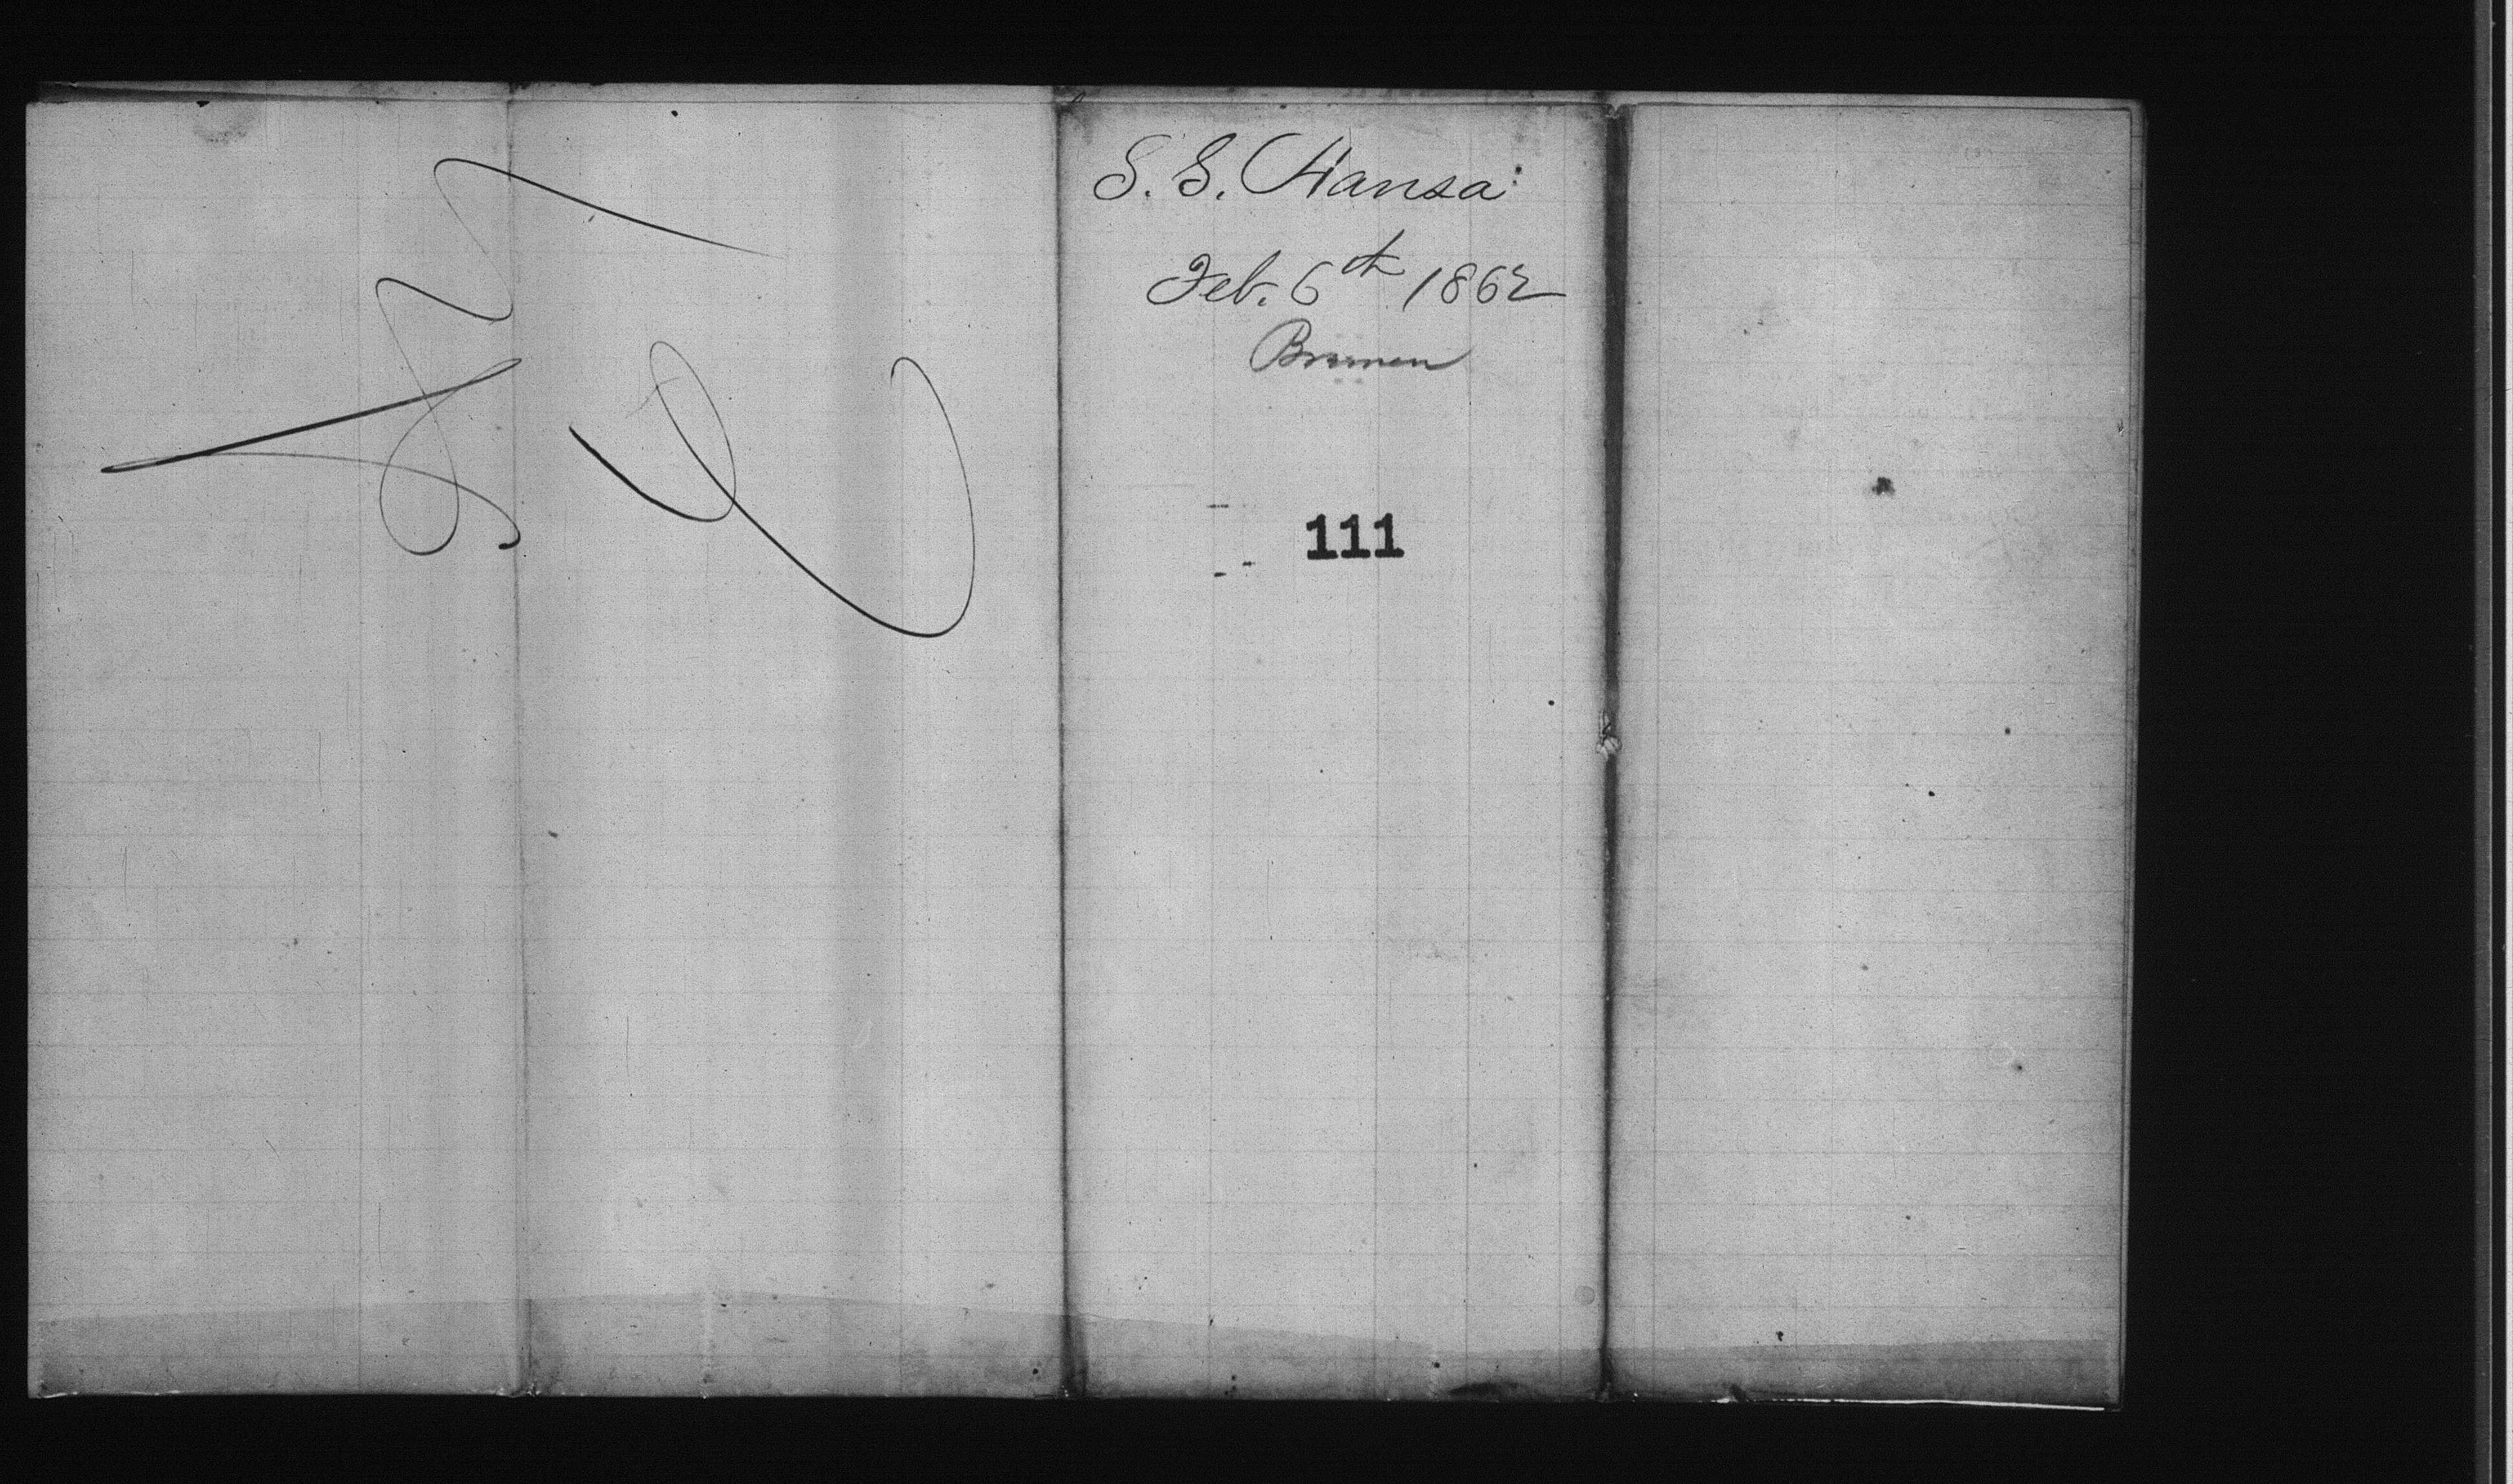 S. S. Hansa
Feb. 6th 1862
Bremen
111